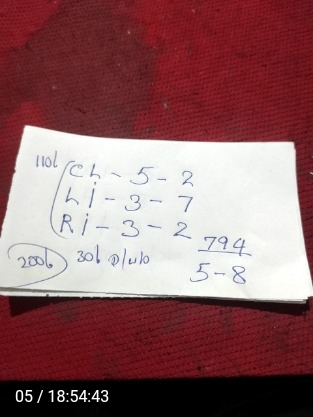 110b
Ch - 5 - 2
Li - 3 - 7
Ri - 3 - 2
794
200b 30b
5-8
05 / 18:54:43